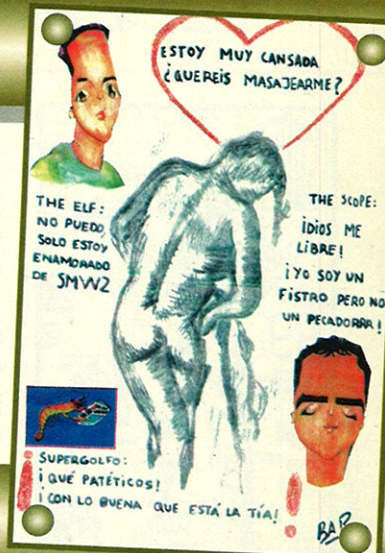 ESTOY MUY CANSADA
¿QUEREIS MASAJEARME?
THE ELF:
NO PUEDO,
SOLO ESTOY
ENAMORADO
DE SMW2
THE SCOPE:
¡DIOS ME
LIBRE!
¡YO SOY UN
FISTRO PERO NO
UN PECADORRR!
SUPERGOLFO:
¡QUÉ PATÉTICOS!
¡CON LO BUENA QUE ESTÁ LA TÍA!
BAR